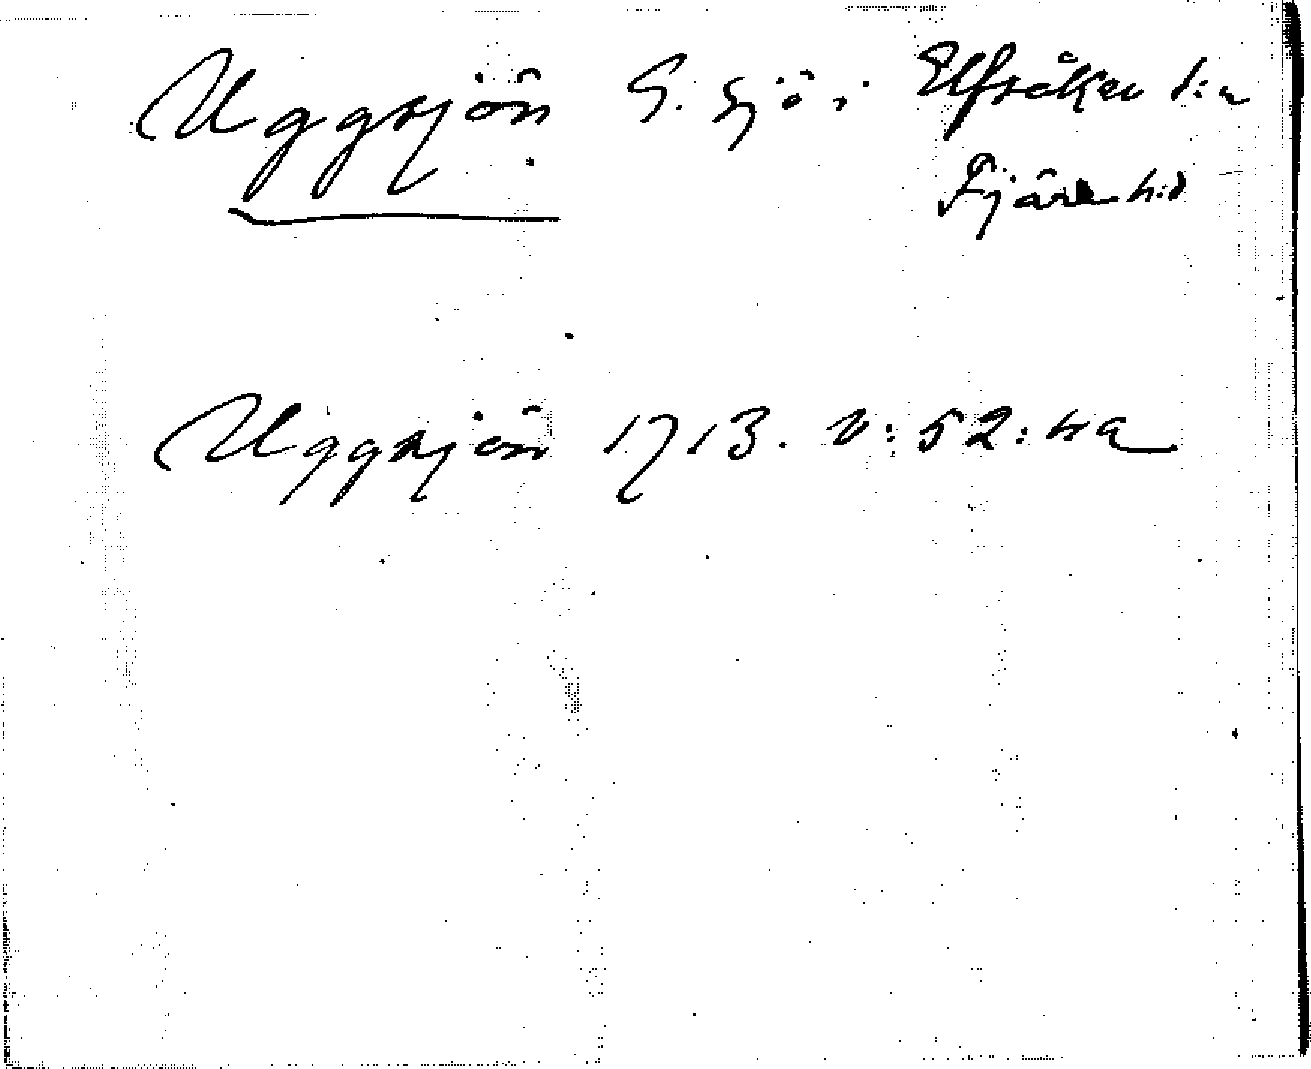 Uggsjön S. sjö i Elfsåker s:n
Fjäre h:d
Uggsjön 1713. v: 52: ha